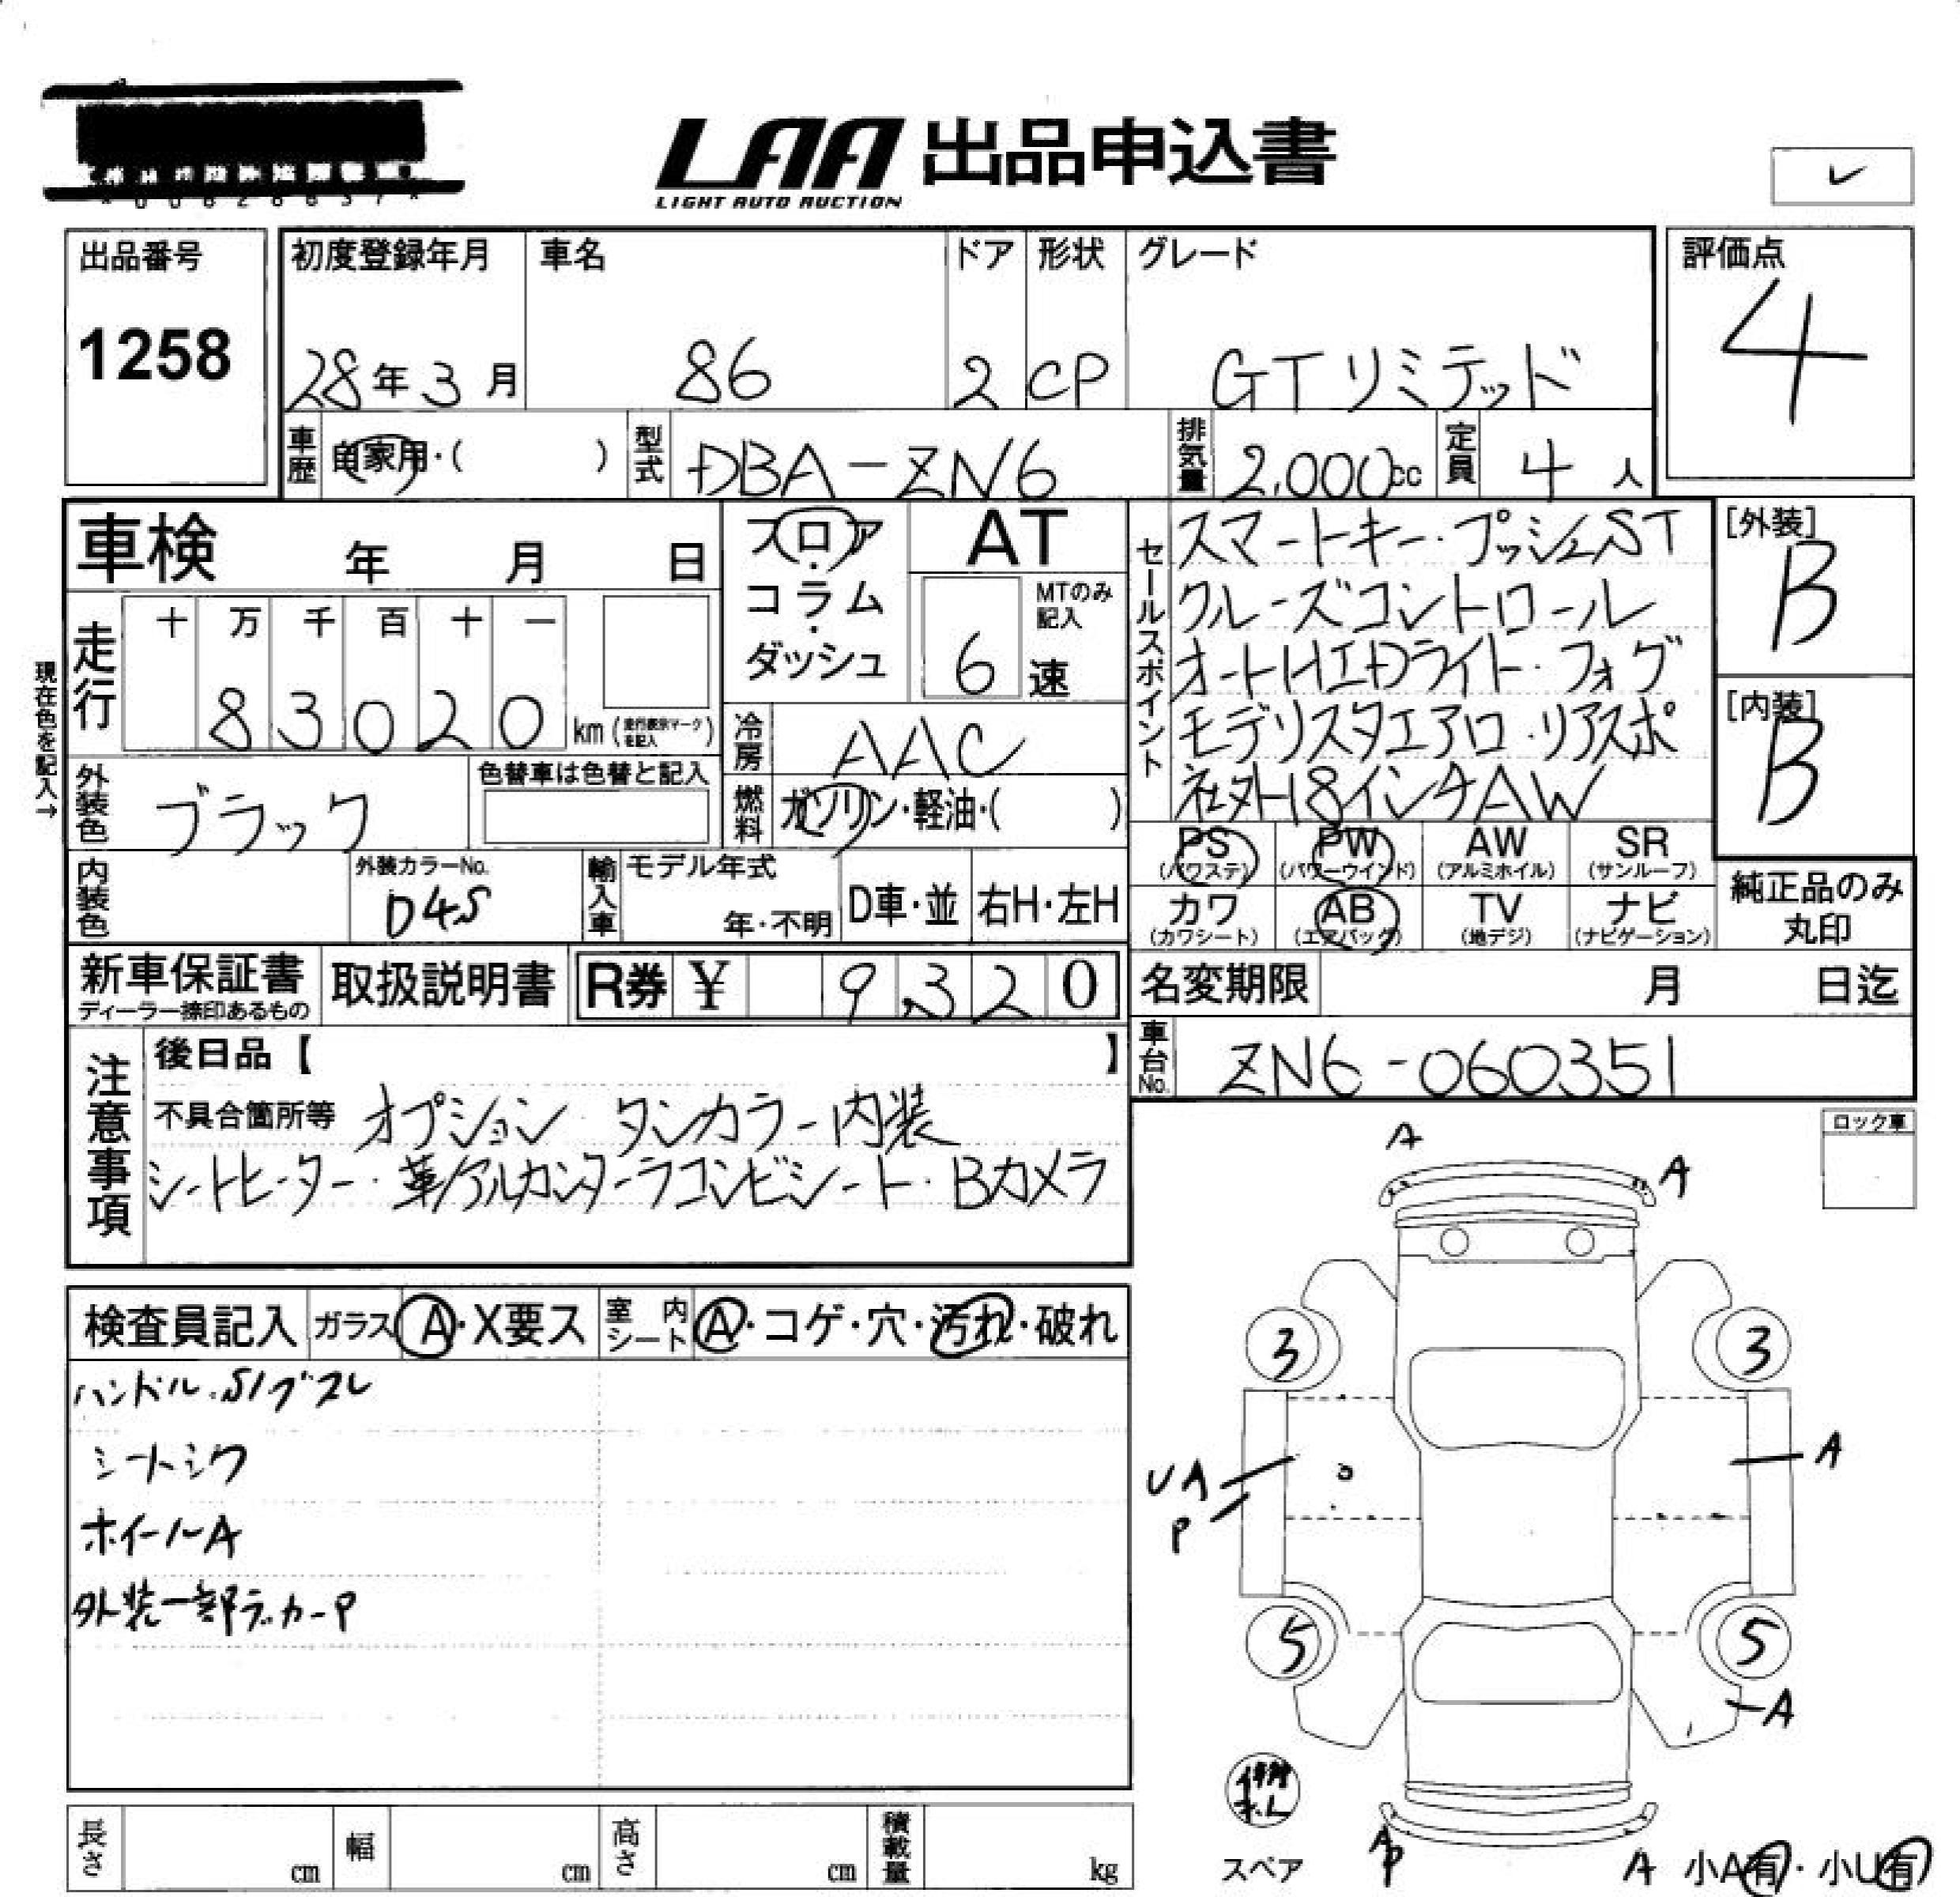 LAA 出品申込書
LIGHT AUTO AUCTION
出品番号
1258
初度登録年月 車名 ドア 形状 グレード
28年3月 86 2 CP GTリミテッド
評価点
4
車歴 自家用・( ) 型式 DBA-ZN6 排気量 2,000cc 定員 4人
車検 年 月 日
フロア・コラム・ダッシュ
AT
MTのみ記入
6速
セールスポイント
スマートキー・プッシュST
クルーズコントロール
オートHIDライト・フォグ
モデリスタエアロ・リアスポ
社外18インチAW
[外装]
B
[内装]
B
現在色を記入→
走行 十 万 千 百 十 一
83020 km (走行表示マークを記入)
冷房 AAC
外装色 ブラック 色替車は色替と記入
燃料 ガソリン・軽油・( )
PS PW AW SR
(パワステ) (パワーウインド) (アルミホイル) (サンルーフ)
内装色 外装カラーNo. D4S 輸入車 モデル年式 年・不明 D車・並 右H・左H
カワ AB TV ナビ
(カワシート) (エアバッグ) (地デジ) (ナビゲーション)
純正品のみ
丸印
新車保証書 取扱説明書 R券 ¥ 9,320
ディーラー捺印あるもの
名変期限 月 日迄
車台No. ZN6-060351
注意事項
後日品【 】
不具合箇所等 オプション タンカラー内装
シートヒーター・革/アルカンターラコンビシート・Bカメラ
ロック車
検査員記入 ガラス A・X要ス 室内シート A・コゲ・穴・汚れ・破れ
ハンドル.S/ブスレ
シートシワ
ホイールA
外装一部デカールP
A
A
3 3
UA
P
A
5 5
A
スペア
AP
A
小A有・小U有
長さ cm 幅 cm 高さ cm 積載量 kg